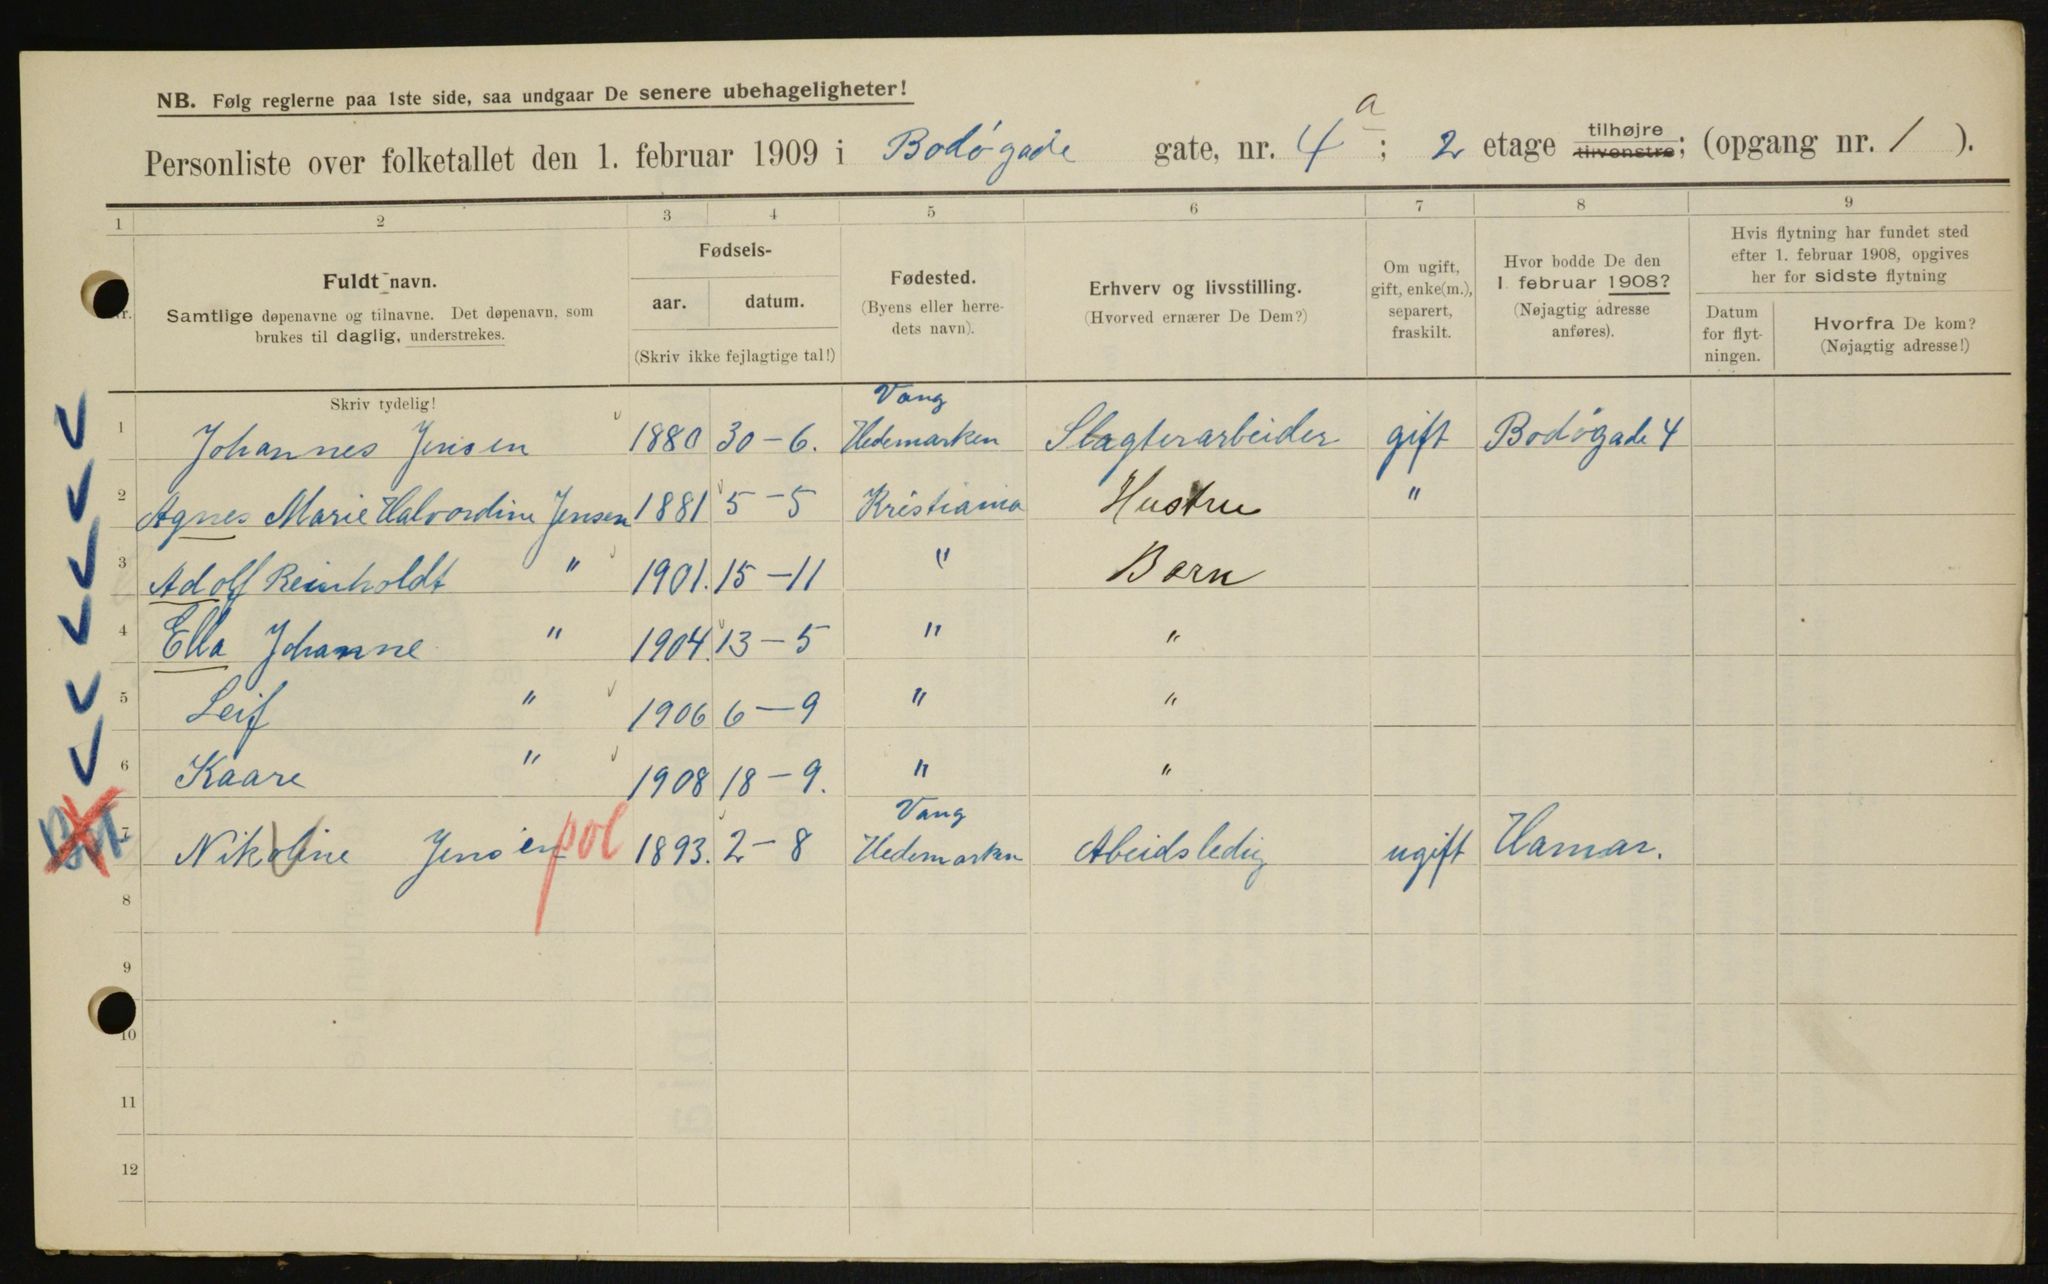 NB. Følg reglerne paa 1ste side, saa undgaar De senere ubehageligheter!
Personliste over folketallet den 1. februar 1909 i Bodøgade gate, nr. 4 a; 2 etage tilhøjre tilvenstre; (opgang nr. 1).
1 2 3 4 5 6 7 8 9
Nr.
Fuldt navn.
Samtlige døpenavne og tilnavne. Det døpenavn, som
brukes til daglig, understrekes.
Fødsels-
aar. datum.
(Skriv ikke fejlagtige tal!)
Fødested.
(Byens eller herre-
dets navn).
Erhverv og livsstilling.
(Hvorved ernærer De Dem?)
Om ugift,
gift, enke(m.),
separert,
fraskilt.
Hvor bodde De den
1. februar 1908?
(Nøjagtig adresse
anføres).
Hvis flytning har fundet sted
efter 1. februar 1908, opgives
her for sidste flytning
Datum
for flyt-
ningen.
Hvorfra De kom?
(Nøjagtig adresse!)
Skriv tydelig!
Vang
1 Johannes Jensen 1880 30-6. Hedemarken Slagterarbeider gift Bodøgade 4
2 Agnes Marie Halvordine Jensen 1881 5-5 Kristiania Hustru "
3 Adolf Reinholdt " 1901. 15-11 " Børn
4 Ella Johanne " 1904. 13-5 " "
5 Leif " 1906 6-9 " "
6 Kaare " 1908 18-9. " "
Vang
7 Nikoline Jensen pol 1893. 2-8 Hedemarken Abeidsledig ugift Hamar.
8
9
10
11
12